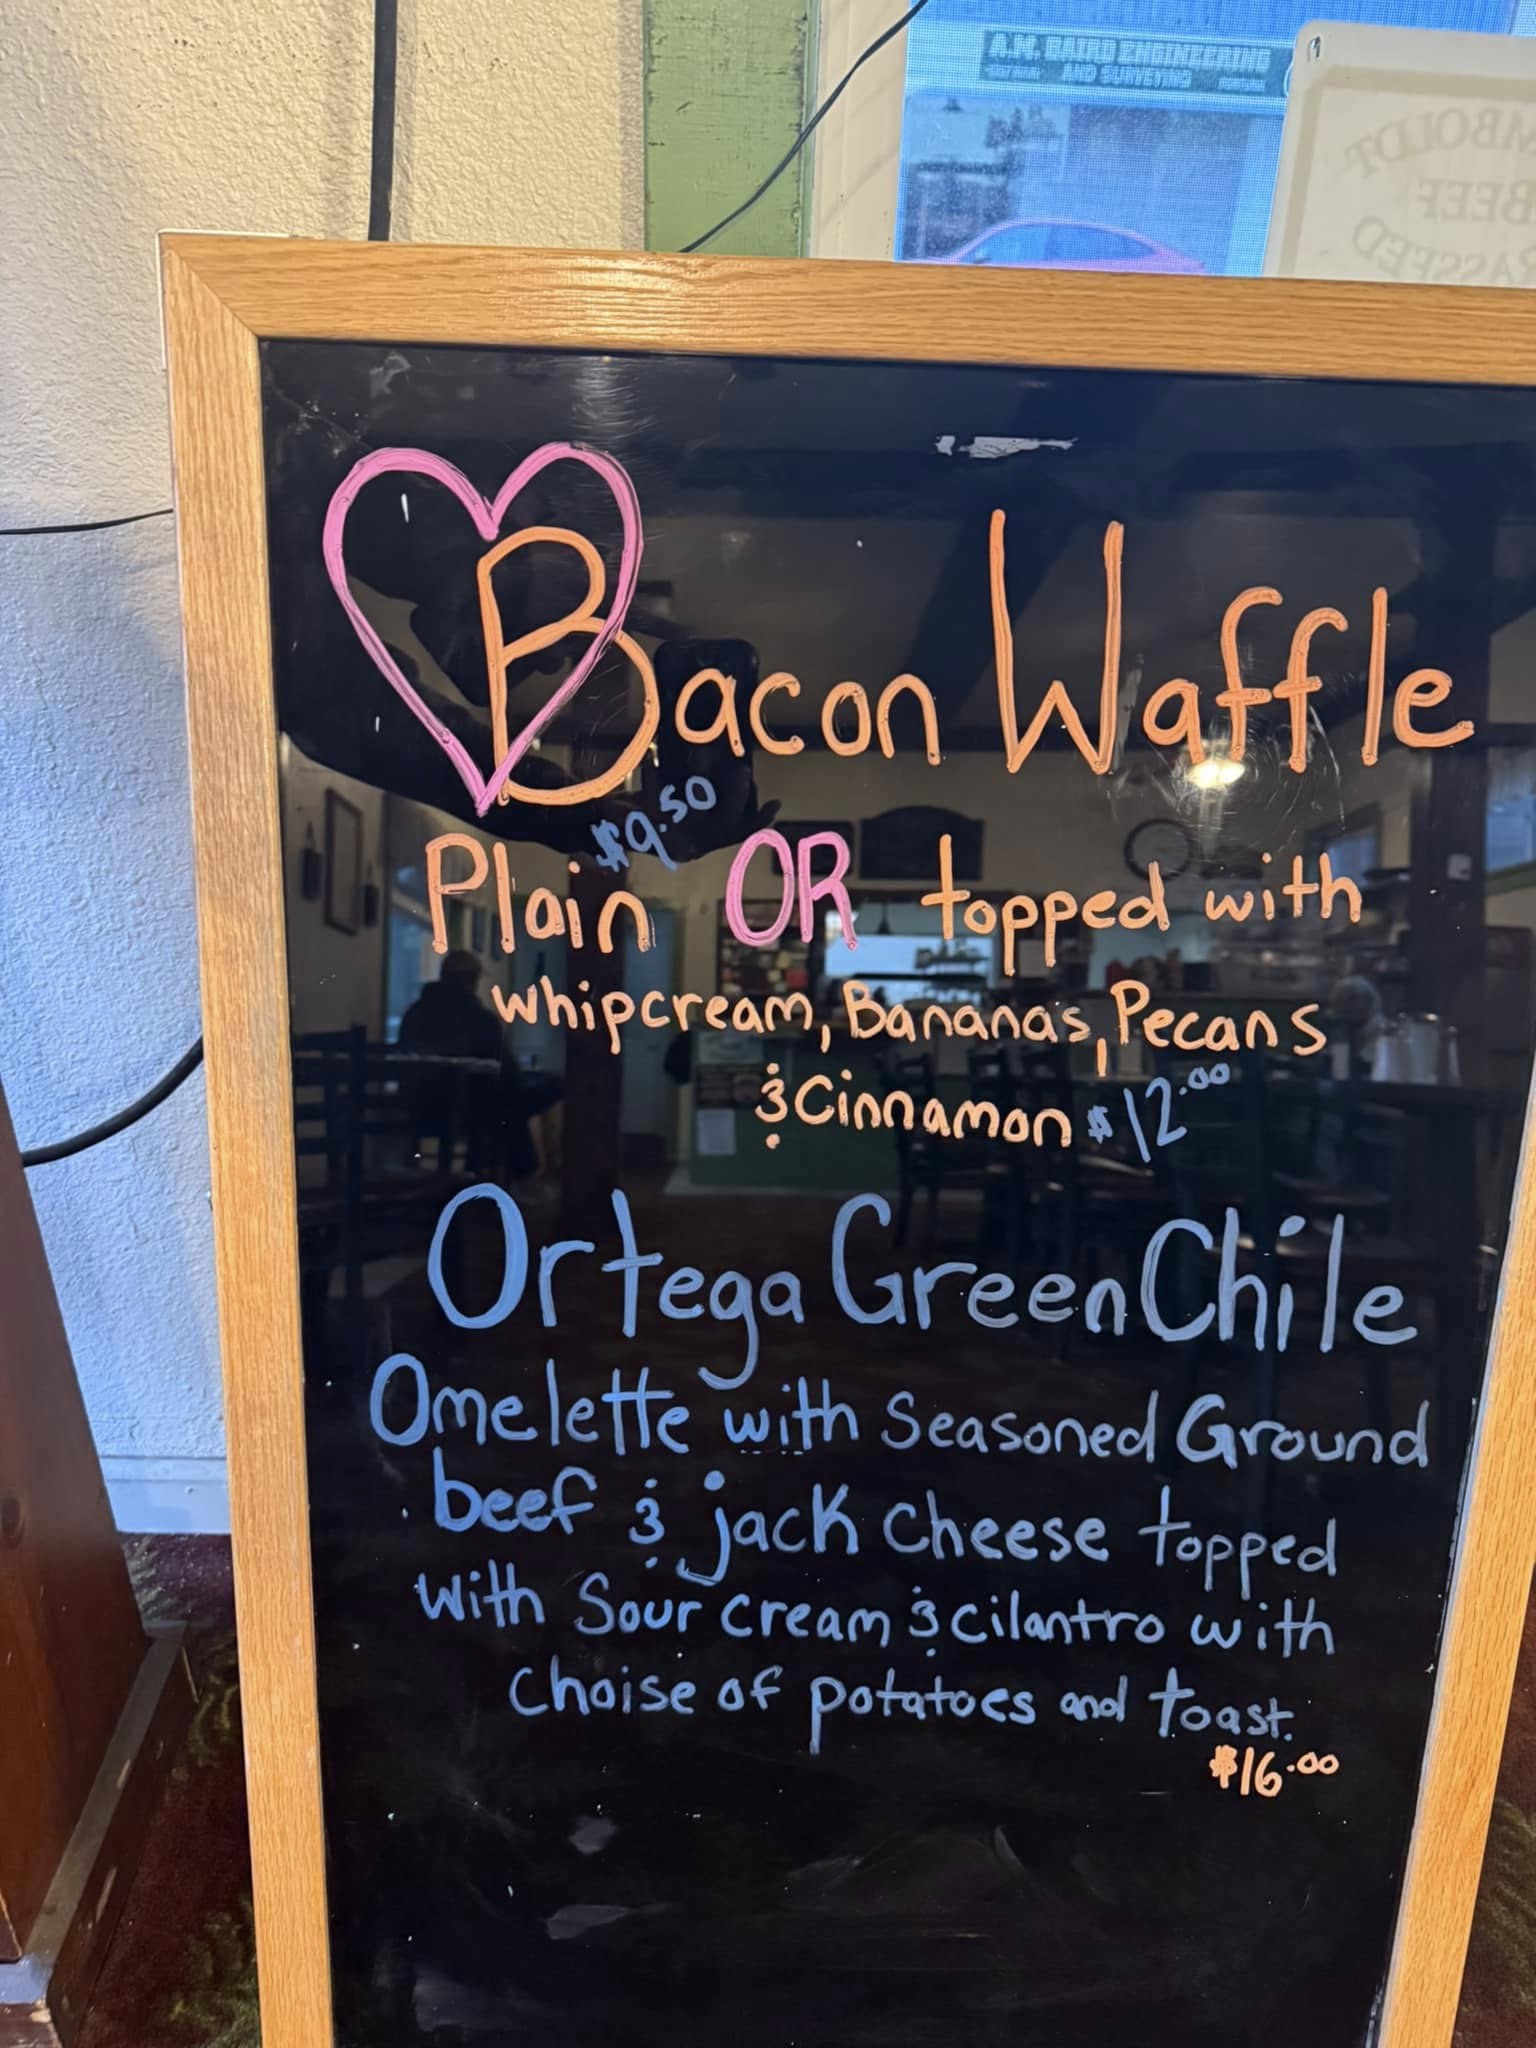 A.M. BAIRD ENGINEERING
AND SURVEYING
BEEF
Bacon Waffle
$9.50
Plain OR topped with
whipcream, Bananas, Pecans
& Cinnamon $12.00
Ortega Green Chile
Omelette with Seasoned Ground
beef & jack cheese topped
with Sour cream & cilantro with
choise of potatoes and toast.
$16.00